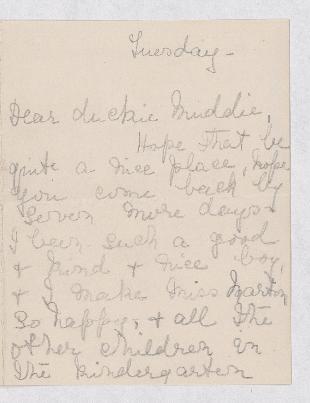 Tuesday -
Dear duckie Muddie,
Hope that be
quite a nice place, hope
you come back by
seven more days.
I been such a good
& kind & nice boy,
& I make Miss Marton
so happy, & all the
other children in
the kindergarten